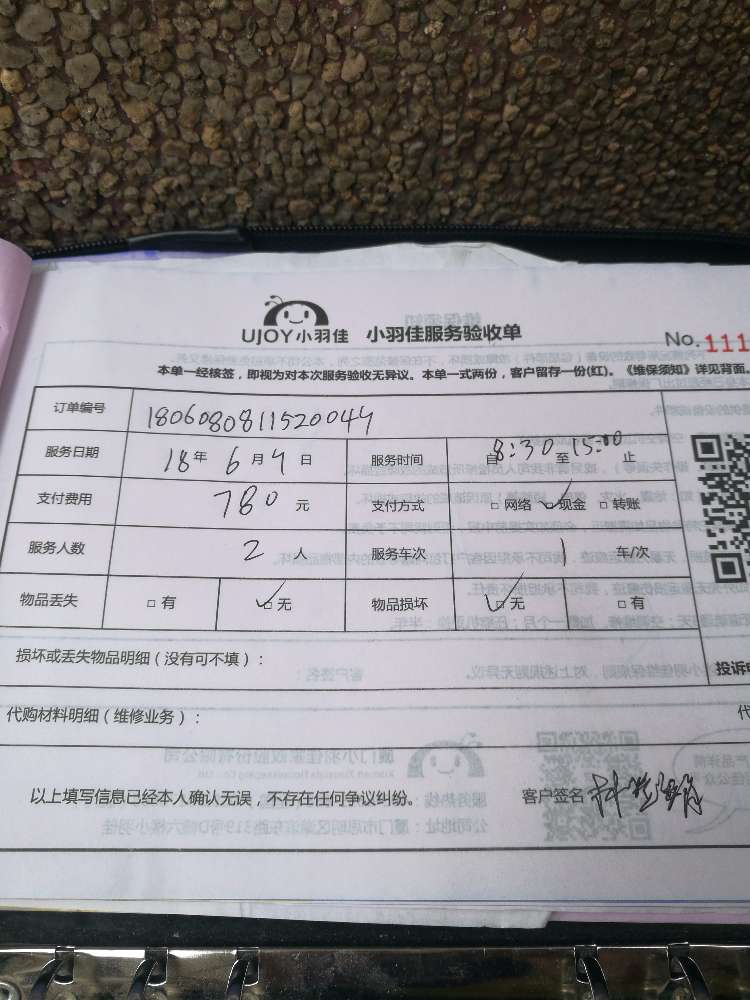 UJOY小羽佳 小羽佳服务验收单
No.111
本单一经核签，即视为对本次服务验收无异议。本单一式两份，客户留存一份(红)。《维保须知》详见背面。
订单编号 1806080811520044
服务日期 18年 6月 9日 服务时间 自8:30至15:00止
支付费用 780元 支付方式 □网络 ☑现金 □转账
服务人数 2人 服务车次 1 车/次
物品丢失 □有 ☑无 物品损坏 ☑无 □有
损坏或丢失物品明细(没有可不填)：
投诉
代购材料明细(维修业务)：
代
以上填写信息已经本人确认无误，不存在任何争议纠纷。 客户签名